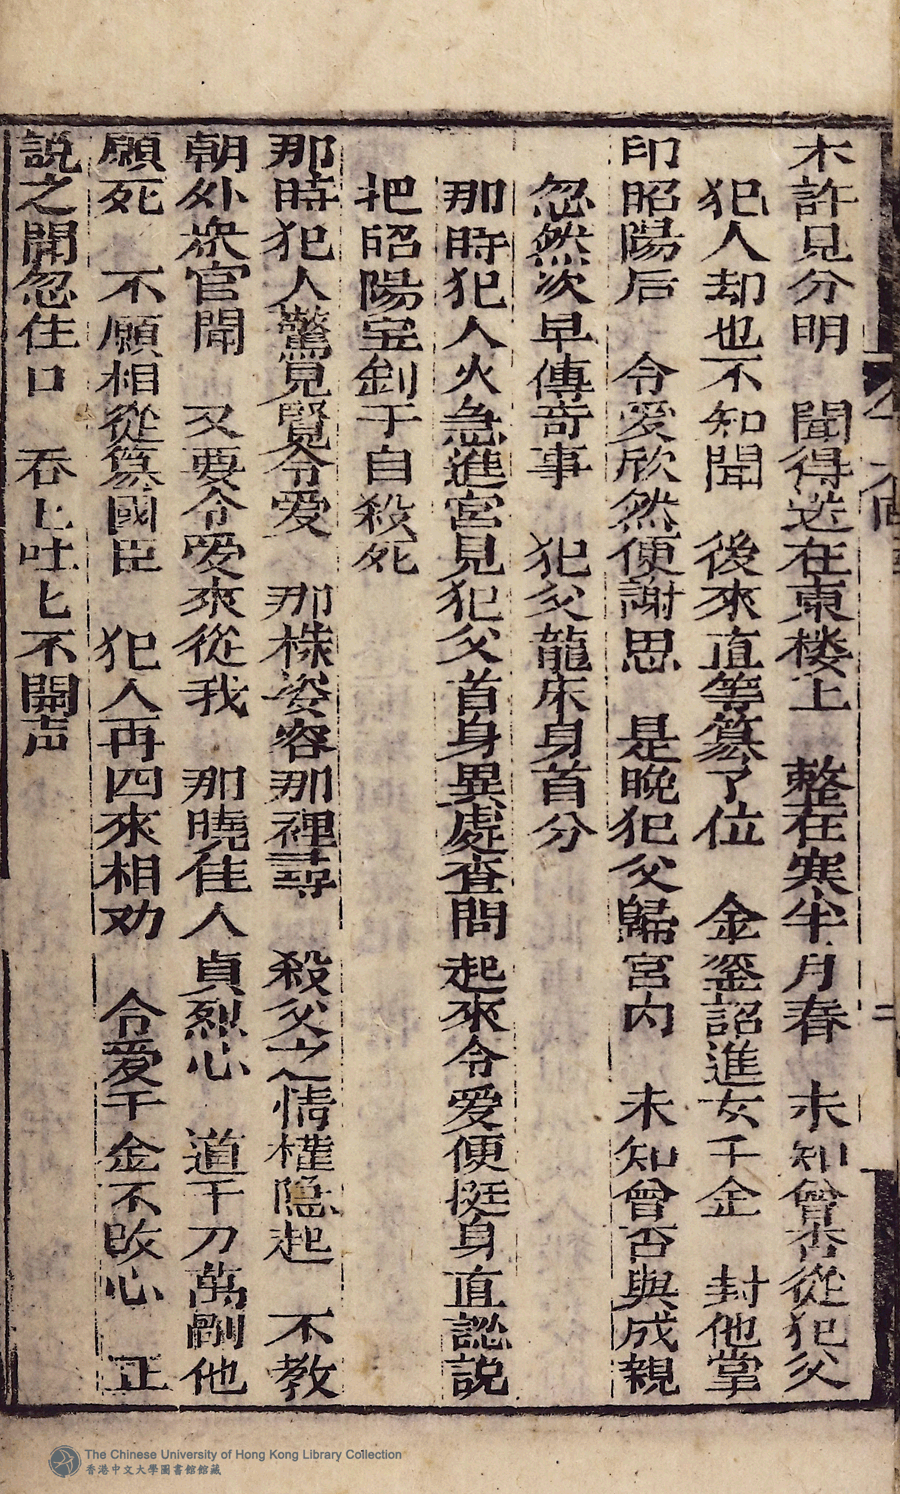 不許見分明　聞得送在東楼上　整在寒半月春　未知曾否從犯父
犯人却也不知聞　後來直等篡了位　金鑾詔進女千金　封他掌
印昭陽后　令愛欣然便謝恩　是晚犯父歸宮内　未知曾否與成親
忽然次早傳奇事　犯父龍床身首分
那時犯人火急進宮見犯父首身異處查問起來令愛便挺身直認説
把昭陽宝劍于自殺死
那時犯人驚見賢令愛　那様姿容那裡尋　殺父之情權隐起　不教
朝外衆官聞　又要令愛來從我　那曉佳人貞烈心　道千刀萬剮他
願死　不願相從篡國臣　犯人再四來相劝　令愛千金不改心　正
説之間忽住口　吞上吐匕不開声
二
The Chinese University of Hong Kong Library Collection
香港中文大學圖書館館藏